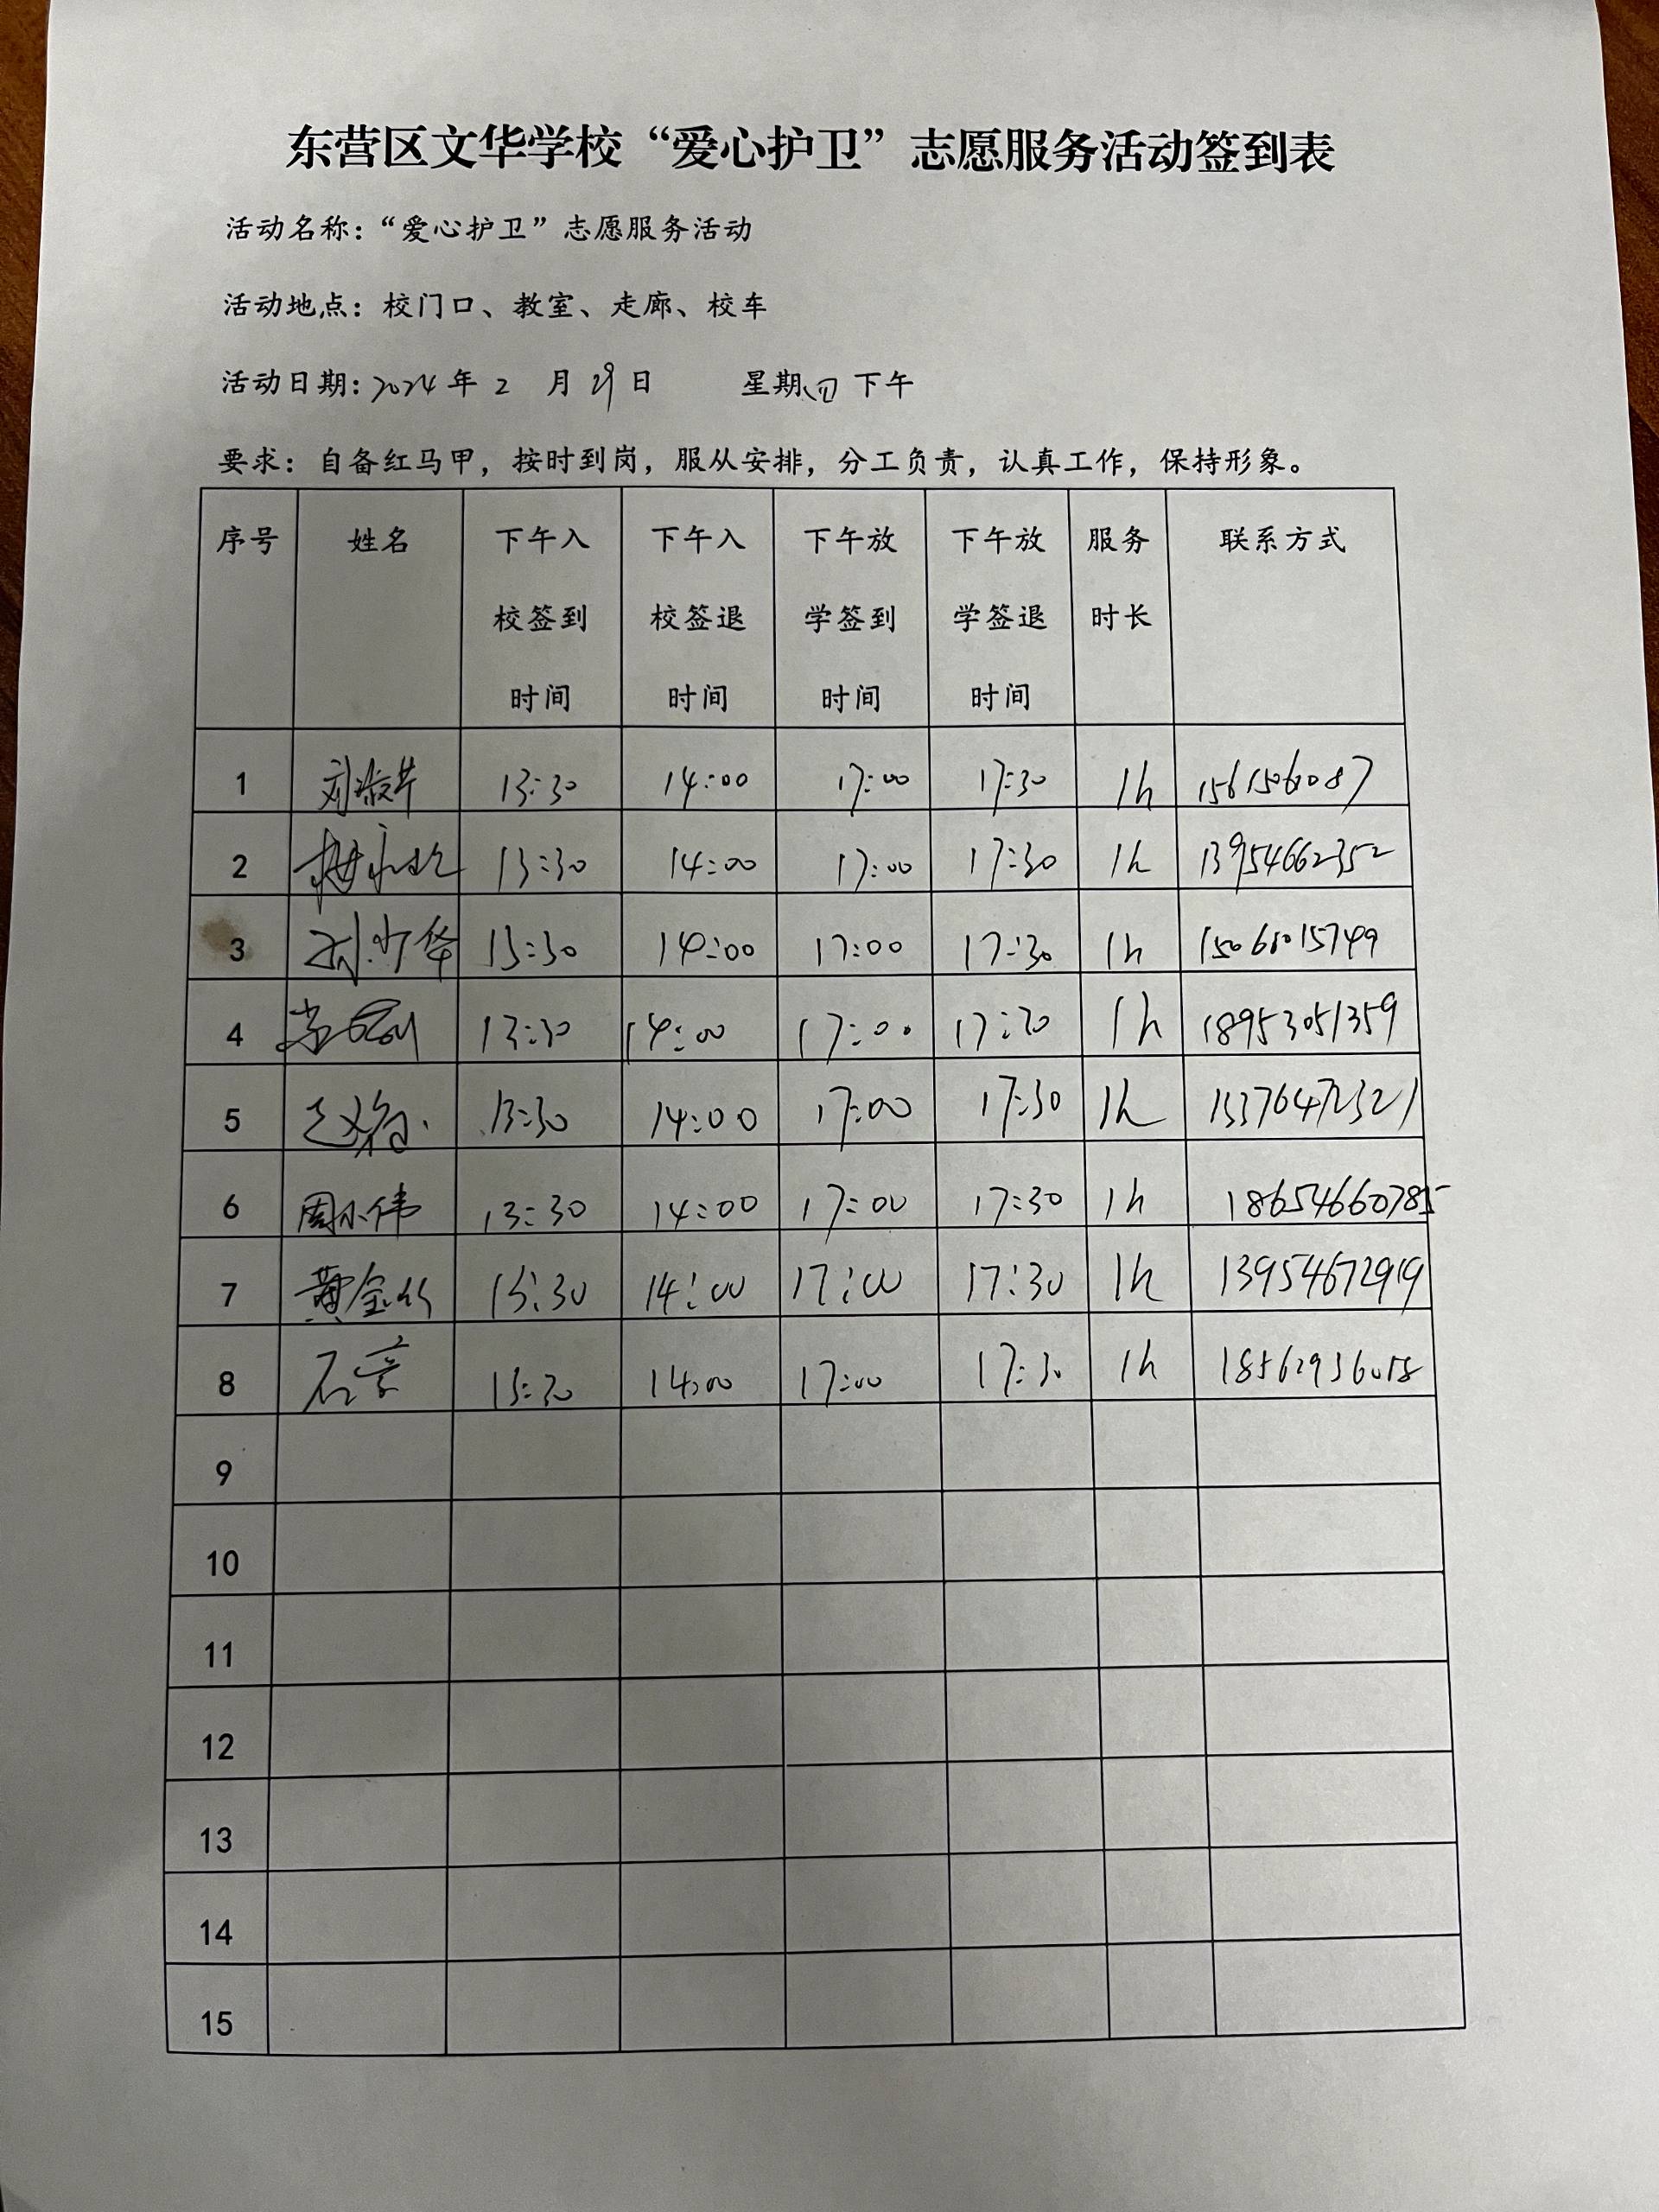 东营区文华学校“爱心护卫”志愿服务活动签到表
活动名称：“爱心护卫”志愿服务活动
活动地点：校门口、教室、走廊、校车
活动日期：2024年 2 月 29日 星期四 下午
要求：自备红马甲，按时到岗，服从安排，分工负责，认真工作，保持形象。
序号 姓名 下午入校签到时间 下午入校签退时间 下午放学签到时间 下午放学签退时间 服务时长 联系方式
1 刘淑芹 13:30 14:00 17:00 17:30 1h
2 13:30 14:00 17:00 17:30 1h 13954662352
3 刘少华 13:30 14:00 17:00 17:30 1h
4 13:30 14:00 17:00 17:30 1h 18953051359
5 13:30 14:00 17:00 17:30 1h 15376472521
6 周小伟 13:30 14:00 17:00 17:30 1h 18654660785
7 13:30 14:00 17:00 17:30 1h 13954672919
8 13:30 14:00 17:00 17:30 1h
9
10
11
12
13
14
15